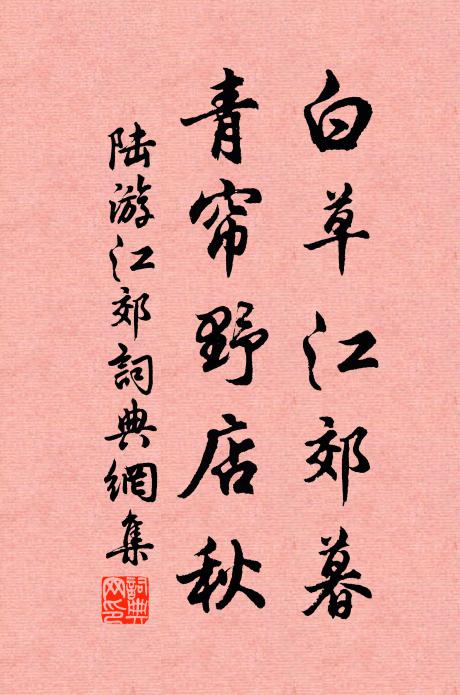 白草江郊暮
青帘野店秋
陆游江郊詞典網集
詞典网印